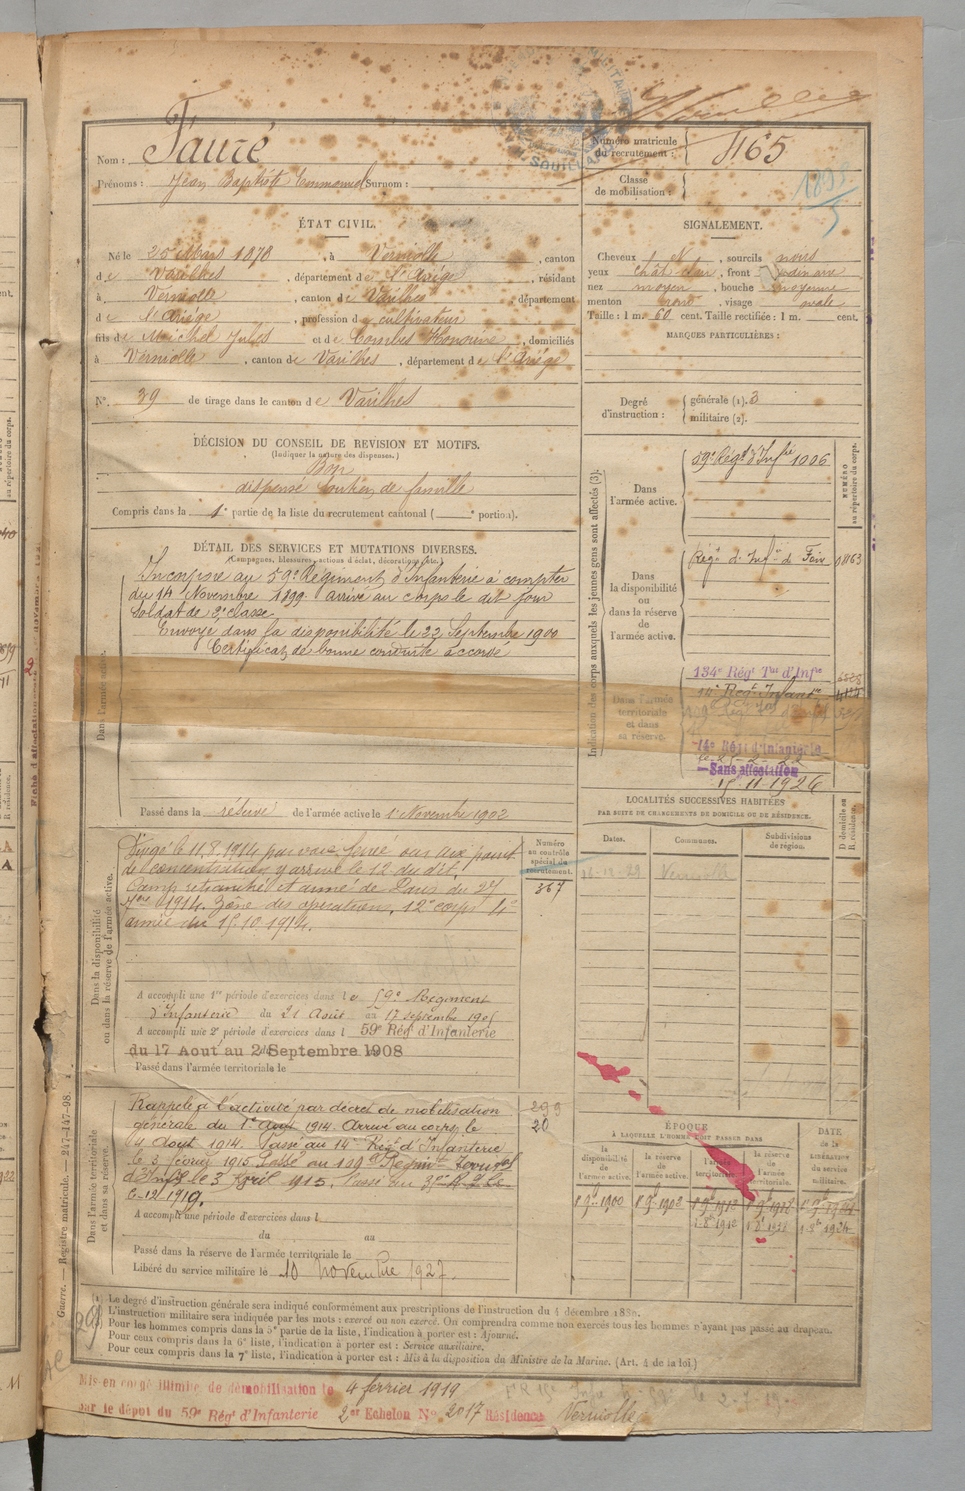 Nom : Fauré
Prénoms : Jean Baptiste Emmanuel Surnom :
Numéro matricule du recrutement : 1165
Classe de mobilisation :
1898
ÉTAT CIVIL.
Né le 25 Mars 1878, à Verniolle, canton
de Varilhes, département de l'Ariège, résidant
à Verniolle, canton de Varilhes, département
de l'Ariège, profession de cultivateur
fils de Michel Jules et de Combes Honorine, domiciliés
à Verniolle, canton de Varilhes, département de l'Ariège
N° 39 de tirage dans le canton de Varilhes
SIGNALEMENT.
Cheveux N, sourcils noirs
yeux chât clair, front ordinaire
nez moyen, bouche moyenne
menton rond, visage ovale
Taille : 1 m. 60 cent. Taille rectifiée : 1 m. cent.
MARQUES PARTICULIÈRES :
Degré d'instruction : générale (1). 3
militaire (2).
DÉCISION DU CONSEIL DE REVISION ET MOTIFS.
(Indiquer la nature des dispenses.)
Bon
dispensé soutien de famille
Compris dans la 1e partie de la liste du recrutement cantonal ( e portion).
DÉTAIL DES SERVICES ET MUTATIONS DIVERSES.
(Campagnes, blessures, actions d'éclat, décorations, etc.)
Dans l'armée active.
Incorporé au 59e Régiment d'Infanterie à compter
du 14 Novembre 1899. arrivé au corps le dit jour
Soldat de 2e classe.
Envoyé dans la disponibilité le 22 Septembre 1900
Certificat de bonne conduite accordé
Passé dans la réserve de l'armée active le 1er Novembre 1902
Indication des corps auxquels les jeunes gens sont affectés (3).
NUMÉRO au répertoire du corps.
Dans l'armée active.
59e Régt d'Infrie 1006
Dans la disponibilité ou dans la réserve de l'armée active.
Régnt d'Infie de Foix 08163
Dans l'armée territoriale et dans sa réserve.
134e Régt Tal d'Infie
14e Régt Infantrie
14e Régt d'Infanterie
—Sans affectation
15-11-1926
LOCALITÉS SUCCESSIVES HABITÉES
PAR SUITE DE CHANGEMENTS DE DOMICILE OU DE RÉSIDENCE.
Dates. Communes. Subdivisions de région. D domicile ou R résidence.
Verniolle
Dans la disponibilité ou dans la réserve de l'armée active.
Numéro au contrôle spécial du recrutement.
367
Dirigé le 11.8.1914 par voie ferrée sur les points
de concentration, y arrive le 12 du dit.
Camp retranché et armé de Paris du 27
1914. Zône des opérations, 12e corps 4e
armée du 15.10.1914.
A accompli une 1re période d'exercices dans le 59e Régiment
d'Infanterie du 21 Août au 17 septembre 1905
A accompli une 2e période d'exercices dans l 59e Rég d'Infanterie
du 17 Août au 2 Septembre 1908
Passé dans l'armée territoriale le
Dans l'armée territoriale et dans sa réserve.
Rappelé à l'activité par décret de mobilisation
générale du 1er Août 1914. Arrivé au corps le
4 Août 1914. Passé au 14e Régt d'Infanterie
le 3 février 1915. Passé au 139e Régimt Territorial
d'Infie le 3 Avril 1915.
6-12-1919.
299
20
A accompli une période d'exercices dans l
du au
Passé dans la réserve de l'armée territoriale le
Libéré du service militaire le 10 novembre 1927.
ÉPOQUE
À LAQUELLE L'HOMME DOIT PASSER DANS
la disponibilité de l'armée active.
la réserve de l'armée active.
l'armée territoriale.
la réserve de l'armée territoriale.
DATE de la LIBÉRATION du service militaire.
1 9bre 1900 1 9bre 1902 1 9bre 1912 1 9bre 1918 1 9bre 1924
1-8bre 1912 1-8bre 1918 1-8bre 1924
(1) Le degré d'instruction générale sera indiqué conformément aux prescriptions de l'instruction du 4 décembre 1889.
L'instruction militaire sera indiquée par les mots : exercé ou non exercé. On comprendra comme non exercés tous les hommes n'ayant pas passé au drapeau.
Pour les hommes compris dans la 5e partie de la liste, l'indication à porter est : Ajourné.
Pour ceux compris dans la 6e liste, l'indication à porter est : Service auxiliaire.
Pour ceux compris dans la 7e liste, l'indication à porter est : Mis à la disposition du Ministre de la Marine. (Art. 4 de la loi.)
Guerre. — Registre matricule. — 247-147-98.
Mis en congé illimité de démobilisation le 4 février 1919
par le dépot du 59e Rég't d'Infanterie 2er Echelon N° 2017 Résidence Verniolle